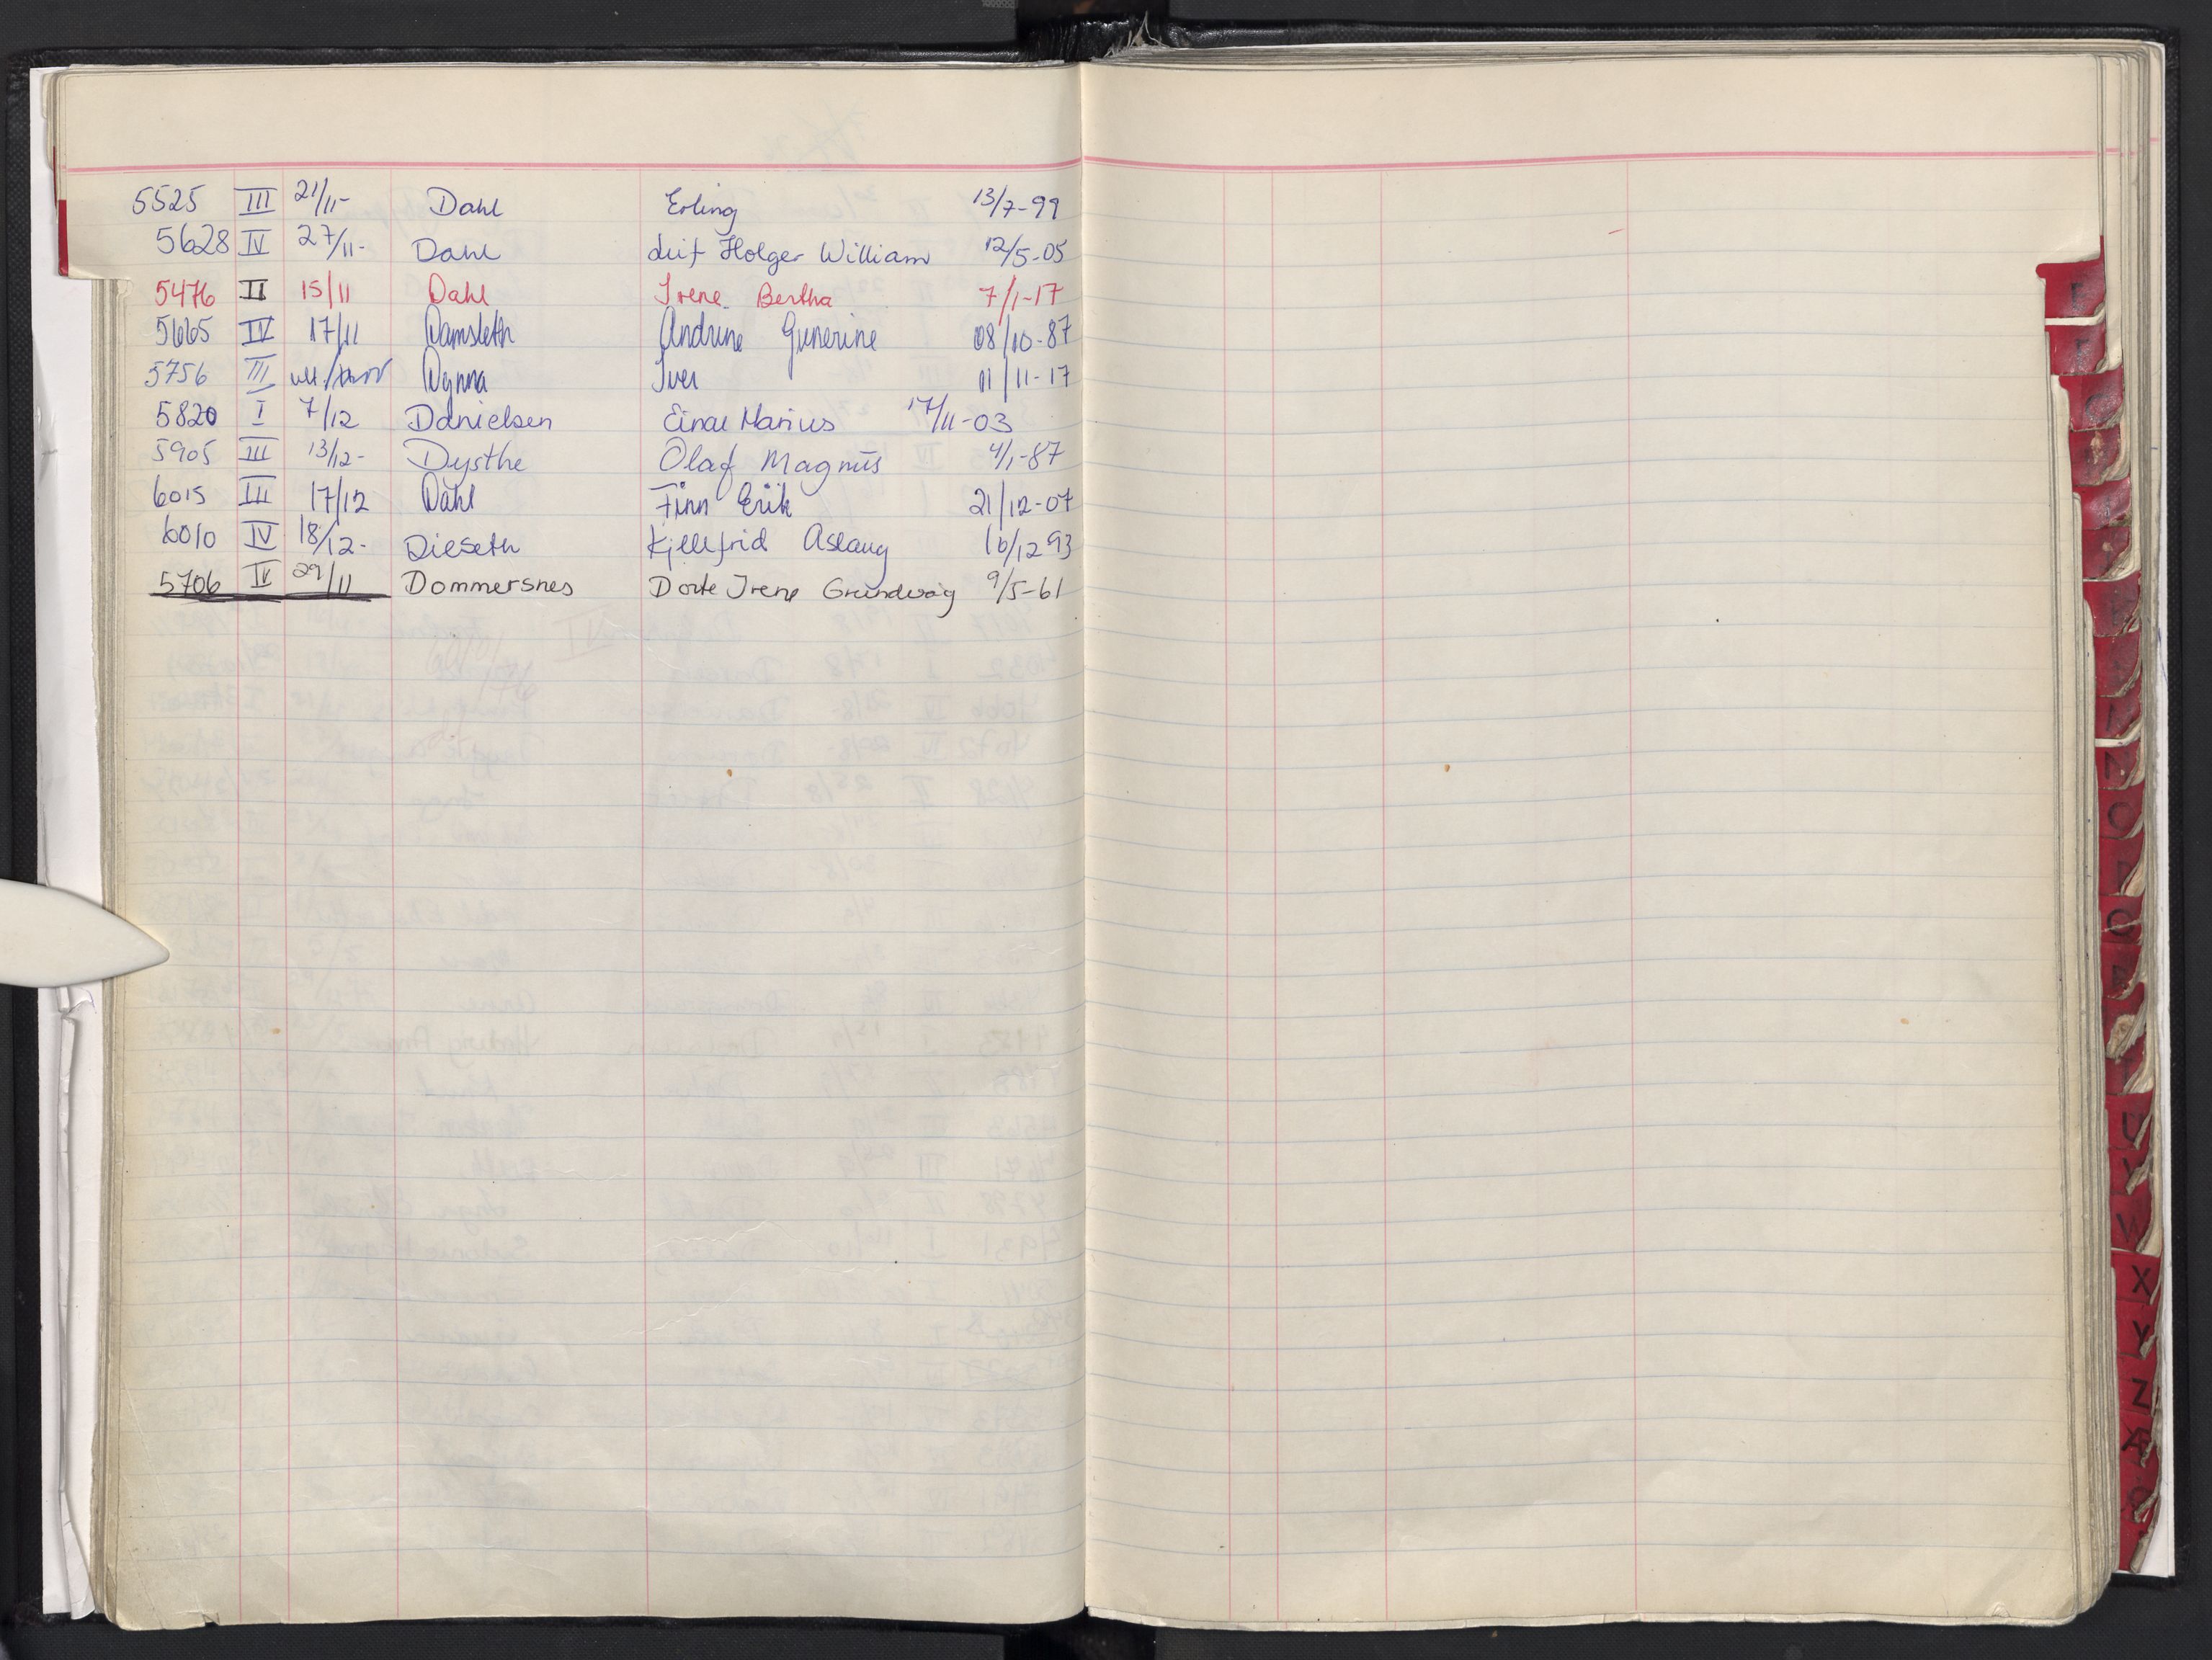 5525 III 21/11- Dahl Erling 13/7-99
5628 IV 27/11- Dahl Leif Holger William 12/5-05
5476 II 15/11 Dahl Irene Bertha 7/1-17
5665 IV 17/11 Damsleth Andrine Gunerine 08/10-87
5756 III Dynna Iver 11/11-17
5820 I 7/12 Danielsen Einar Marius 17/11-03
5905 III 13/12- Dysthe Olaf Magnus 4/1-87
6015 III 17/12 Dahl Finn Erik 21/12-07
6010 IV 18/12- Dieseth Kjellfrid Aslaug 16/12 93
5706 IV 29/11 Dommersnes Dorte Irene Grundvåg 9/5-61
N
O
P
Q
R
U
V
W
X
Y
Z
Æ
Ø